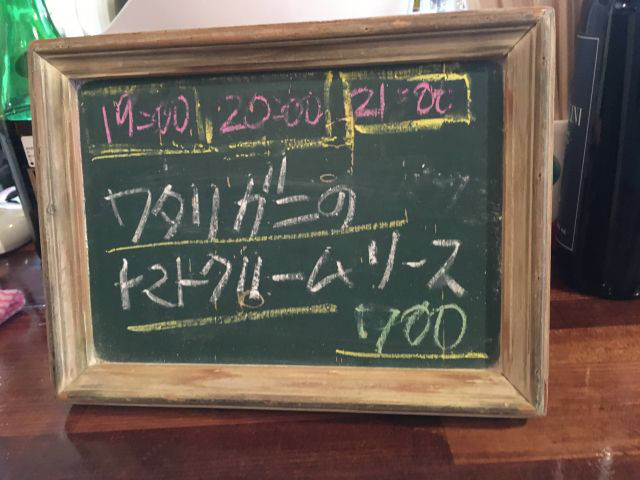 19:00 20:00 21:00
ワタリガニの
トマトクリームソース
700